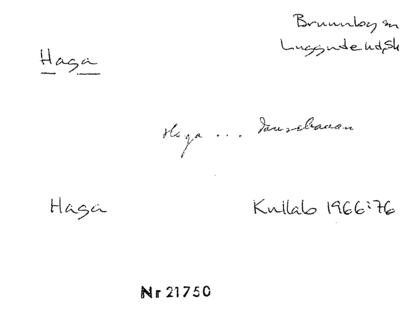 Brunnby sn
Haga
Luggude hd, Sk
Haga ... Danebanan
Haga Kullab 1966:76
Nr 21750